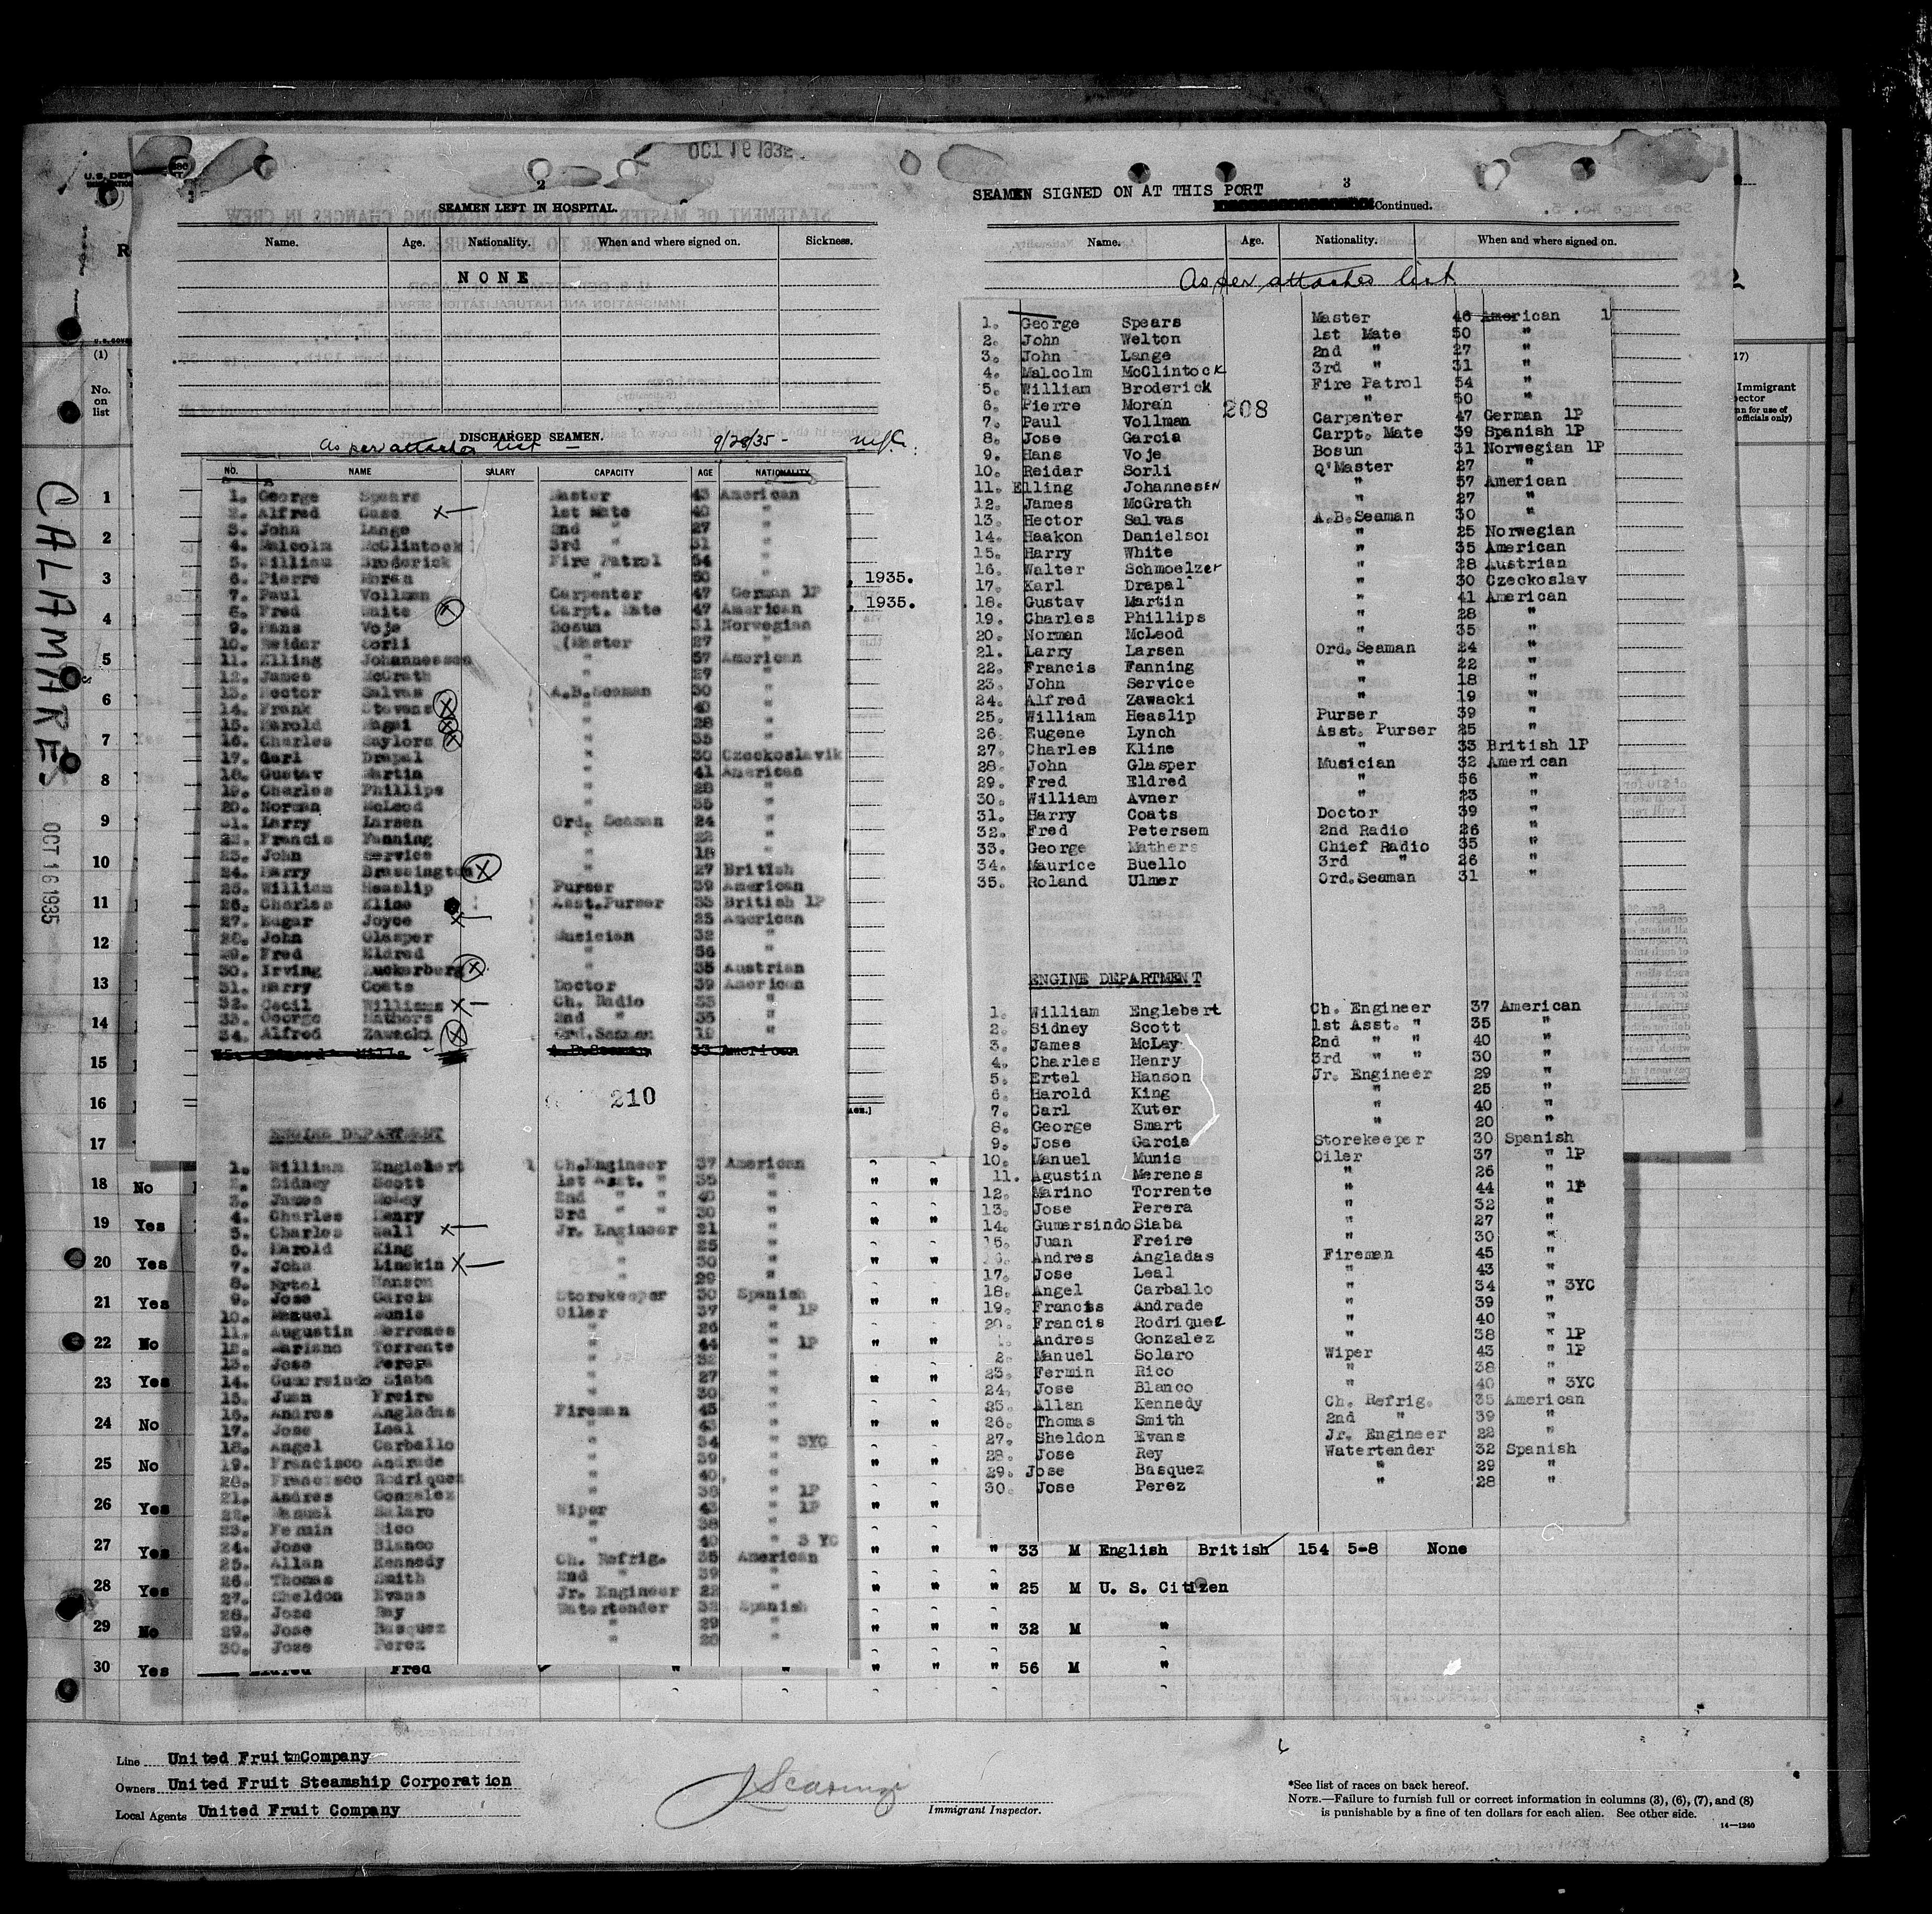 OCT 16 1935
2
SEAMEN LEFT IN HOSPITAL.
Name. Age. Nationality. When and where signed on. Sickness.
NONE
DISCHARGED SEAMEN.
As per attached list 9/28/35 -
NO. NAME SALARY CAPACITY AGE NATIONALITY
1. George Spears Master 43 American
2. Alfred Case x— 1st Mate 40 "
3. John Lange 2nd " 27 "
4. Malcolm McClintock 3rd " 31 "
5. William Broderick Fire Patrol 54 "
6. Pierre Moran " 50 "
7. Paul Vollman Carpenter 47 German 1P
8. Fred Waite x Carpt. Mate 47 American
9. Hans Voje Bosun 31 Norwegian
10. Reidar Sorli (Master 27 "
11. Elling Johannessen " 57 American
12. James McGrath " 27 "
13. Hector Salvas A.B.Seaman 30 "
14. Frank Stevens x " 40 "
15. Harold Magai x " 28 "
16. Charles Saylors x " 35 "
17. Carl Drapal " 30 Czeckoslavik
18. Gustav Martin " 41 American
19. Charles Phillips " 28 "
20. Norman McLeod " 35 "
21. Larry Larsen Ord. Seaman 24 "
22. Francis Fanning " 22 "
23. John Service " 18 "
24. Harry Brassington x " 27 British
25. William Heaslip Purser 39 American
26. Charles Kline Asst.Purser 33 British 1P
27. Edgar Joyce x— " 25 American
28. John Glasper Musician 32 "
29. Fred Eldred " 56 "
30. Irving Zuckerberg x " 35 Austrian
31. Harry Coats Doctor 39 American
32. Cecil Williams x— Ch. Radio 33 "
33. George Mathers 2nd " 35 "
34. Alfred Zawacki x Ord.Seaman 19 "
35. Edward Mills A.B.Seaman 33 American
210
ENGINE DEPARTMENT
1. William Englebert Ch.Engineer 37 American
2. Sidney Scott 1st Asst. " 35 "
3. James McLay 2nd " " 40 "
4. Charles Henry 3rd " " 30 "
5. Charles Hall x— Jr. Engineer 21 "
6. Harold King " 25 "
7. John Linskin x— " 30 "
8. Ertel Hanson " 29 "
9. Jose Garcia Storekeeper 30 Spanish
10. Manuel Munis Oiler 37 " 1P
11. Augustin Merrenes " 26 "
12. Mariano Torrente " 44 " 1P
13. Jose Perera " 32 "
14. Gumersindo Siaba " 27 "
15. Juan Freire " 30 "
16. Andres Angladas Fireman 45 "
17. Jose Leal " 43 "
18. Angel Carballo " 34 " 3YC
19. Francisco Andrade " 39 "
20. Francisco Rodriquez " 40 "
21. Andres Gonzalez " 38 " 1P
22. Manuel Salaro Wiper 43 " 1P
23. Femin Rico " 38 "
24. Jose Blanco " 40 " 3 YC
25. Allan Kennedy Ch. Refrig. 35 American
26. Thomas Smith 2nd " 39 "
27. Sheldon Evans Jr. Engineer 22 "
28. Jose Ray Watertender 32 Spanish
29. Jose Basquez " 29 "
30. Jose Perez " 28 "
, 1935.
, 1935.
3
SEAMEN SIGNED ON AT THIS PORT
Continued.
Name. Age. Nationality. When and where signed on.
As per attaches list
1. George Spears Master 46 American 1
2. John Welton 1st Mate 50 "
3. John Lange 2nd " 27 "
4. Malcolm McClintock 3rd " 31 "
5. William Broderick Fire Patrol 54 "
6. Pierre Moran " 50 "
208
7. Paul Vollman Carpenter 47 German 1P
8. Jose Garcia Carpt. Mate 39 Spanish 1P
9. Hans Voje Bosun 31 Norwegian 1P
10. Reidar Sorli Q'Master 27 "
11. Elling Johannesen " 57 American
12. James McGrath " 27 "
13. Hector Salvas A.B.Seaman 30 "
14. Haakon Danielson " 25 Norwegian
15. Harry White " 35 American
16. Walter Schmoelzer " 28 Austrian
17. Karl Drapal " 30 Czeckoslav
18. Gustav Martin " 41 American
19. Charles Phillips " 28 "
20. Norman McLeod " 35 "
21. Larry Larsen Ord.Seaman 24 "
22. Francis Fanning " 22 "
23. John Service " 18 "
24. Alfred Zawacki " 19 "
25. William Heaslip Purser 39 "
26. Eugene Lynch Asst. Purser 25 "
27. Charles Kline " 33 British 1P
28. John Glasper Musician 32 American
29. Fred Eldred " 56 "
30. William Avner " 23 "
31. Harry Coats Doctor 39 "
32. Fred Petersem 2nd Radio 26 "
33. George Mathers Chief Radio 35 "
34. Maurice Buello 3rd " 26 "
35. Roland Ulmer Ord.Seaman 31 "
ENGINE DEPARTMENT
1. William Englebert Ch. Engineer 37 American
2. Sidney Scott 1st Asst. " 35 "
3. James McLay 2nd " " 40 "
4. Charles Henry 3rd " " 30 "
5. Ertel Hanson Jr. Engineer 29 "
6. Harold King " 25 "
7. Carl Kuter " 40 "
8. George Smart " 20 "
9. Jose Garcia Storekeeper 30 Spanish
10. Manuel Munis Oiler 37 " 1P
11. Agustin Merenes " 26 "
12. Marino Torrente " 44 " 1P
13. Jose Perera " 32 "
14. Gumersindo Siaba " 27 "
15. Juan Freire " 30 "
16. Andres Angladas Fireman 45 "
17. Jose Leal " 43 "
18. Angel Carballo " 34 " 3YC
19. Francis Andrade " 39 "
20. Francis Rodriquez " 40 "
1. Andres Gonzalez " 38 " 1P
2. Manuel Solaro Wiper 43 " 1P
23. Fermin Rico " 38 "
24. Jose Blanco " 40 " 3YC
25. Allan Kennedy Ch. Refrig. 35 American
26. Thomas Smith 2nd " 39 "
27. Sheldon Evans Jr. Engineer 22 "
28. Jose Rey Watertender 32 Spanish
29. Jose Basquez " 29 "
30. Jose Perez " 28 "
CALAMARES
OCT 16 1935
U.S. DEP
(1)
No. on list
1
2
3
4
5
6
7
8
9
10
11
12
13
14
15
16
17
18 No
19 Yes
20 Yes
21 Yes
22 No
23 Yes
24 No
25 No
26 Yes
27 Yes " " " 33 M English British 154 5-8 None
28 Yes " " " 25 M U. S. Citizen
29 No " " " 32 M "
30 Yes Fred " " " " " 56 M "
17)
Immigrant
officials only)
Line United Fruit Company
Owners United Fruit Steamship Corporation
Local Agents United Fruit Company
Immigrant Inspector.
*See list of races on back hereof.
NOTE.—Failure to furnish full or correct information in columns (3), (6), (7), and (8)
is punishable by a fine of ten dollars for each alien. See other side.
14—1240